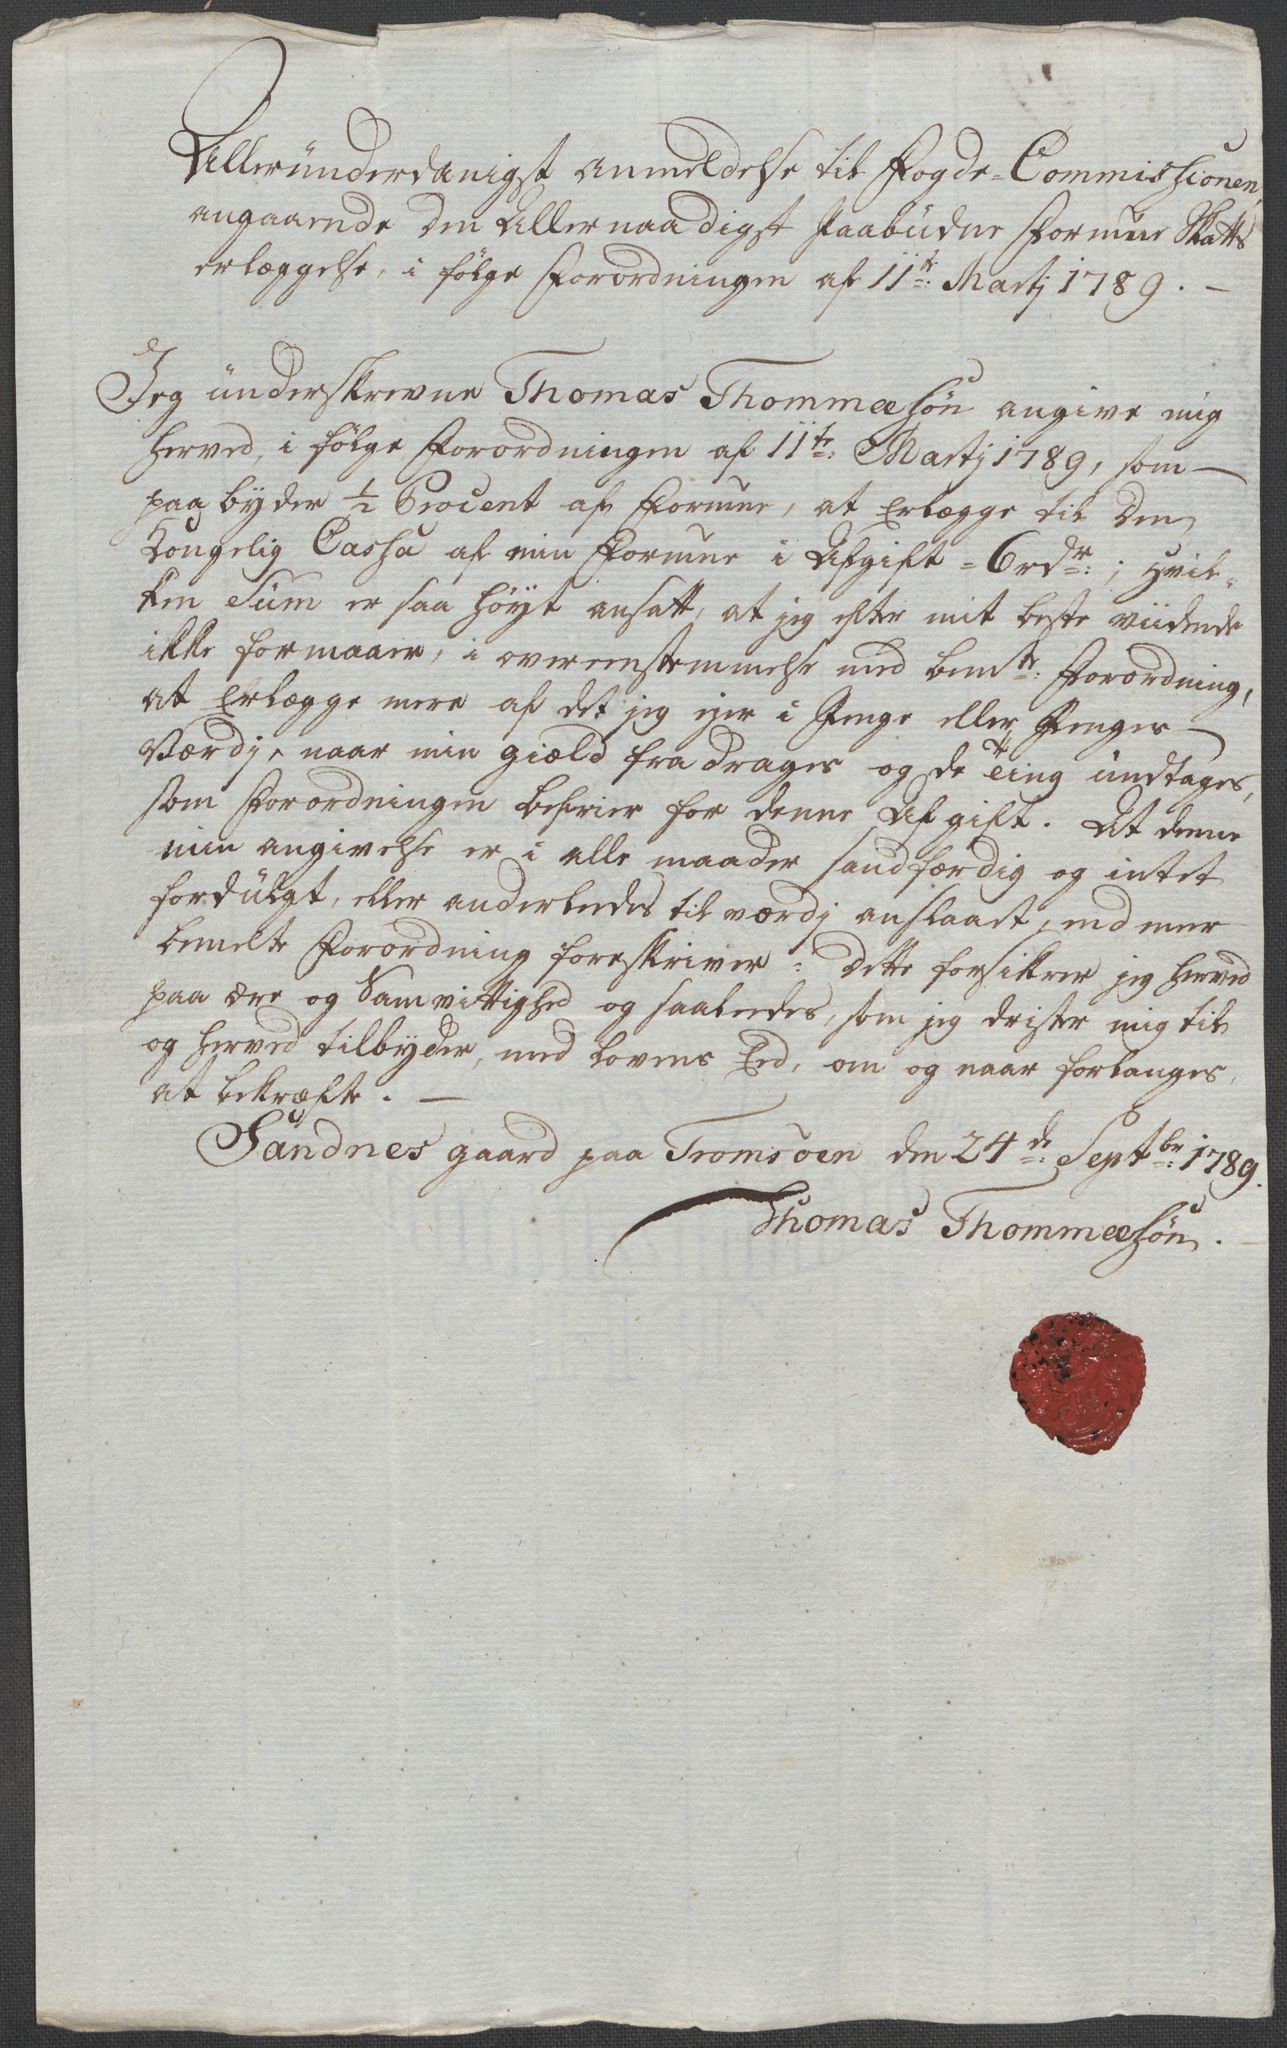 Alleründerdanigst anmeldelse til Fogde-Commissionen,
angaaende den Allernaadigst Paabüdne Formue Skatts
erlæggelse, i følge Forordningen af 11te: Martj 1789. -
Jeg ünderskrevne Thomas Thommæsøn angive mig
herved, i følge Forordningen af 11te: Martj 1789, som
paabyder ½ Procent af Formue, at Erlægge til den
Kongelig Cassa af min Formue i Afgift = 6 rdr:; hvil-
ken Süm er saa høyt ansatt, at jeg efter mit beste viidende
ikke formaaer, i overeenstemmelse med bemte: Forordning,
at Erlægge mere af det jeg ejer i Penge eller Penges
Værdj, naar min giæld fradrages og de ting ündtages,
som Forordningen befrier for denne Afgift. At denne
min angivelse er i alle maader sandfærdig og intet
fordülgt, eller anderledes til værdj anslaaet, end mer
bemelte Forordning foreskriver: dette forsikrer jeg herved
paa ære og Samvittighed og saaledes, som jeg drister mig til
og herved tilbyder, med Lovens Eed, om og naar forlanges,
at bekræfte. -
Sandnes gaard paa Tromsøen den 24de: Septbr: 1789.
Thomas Thommæsøn.